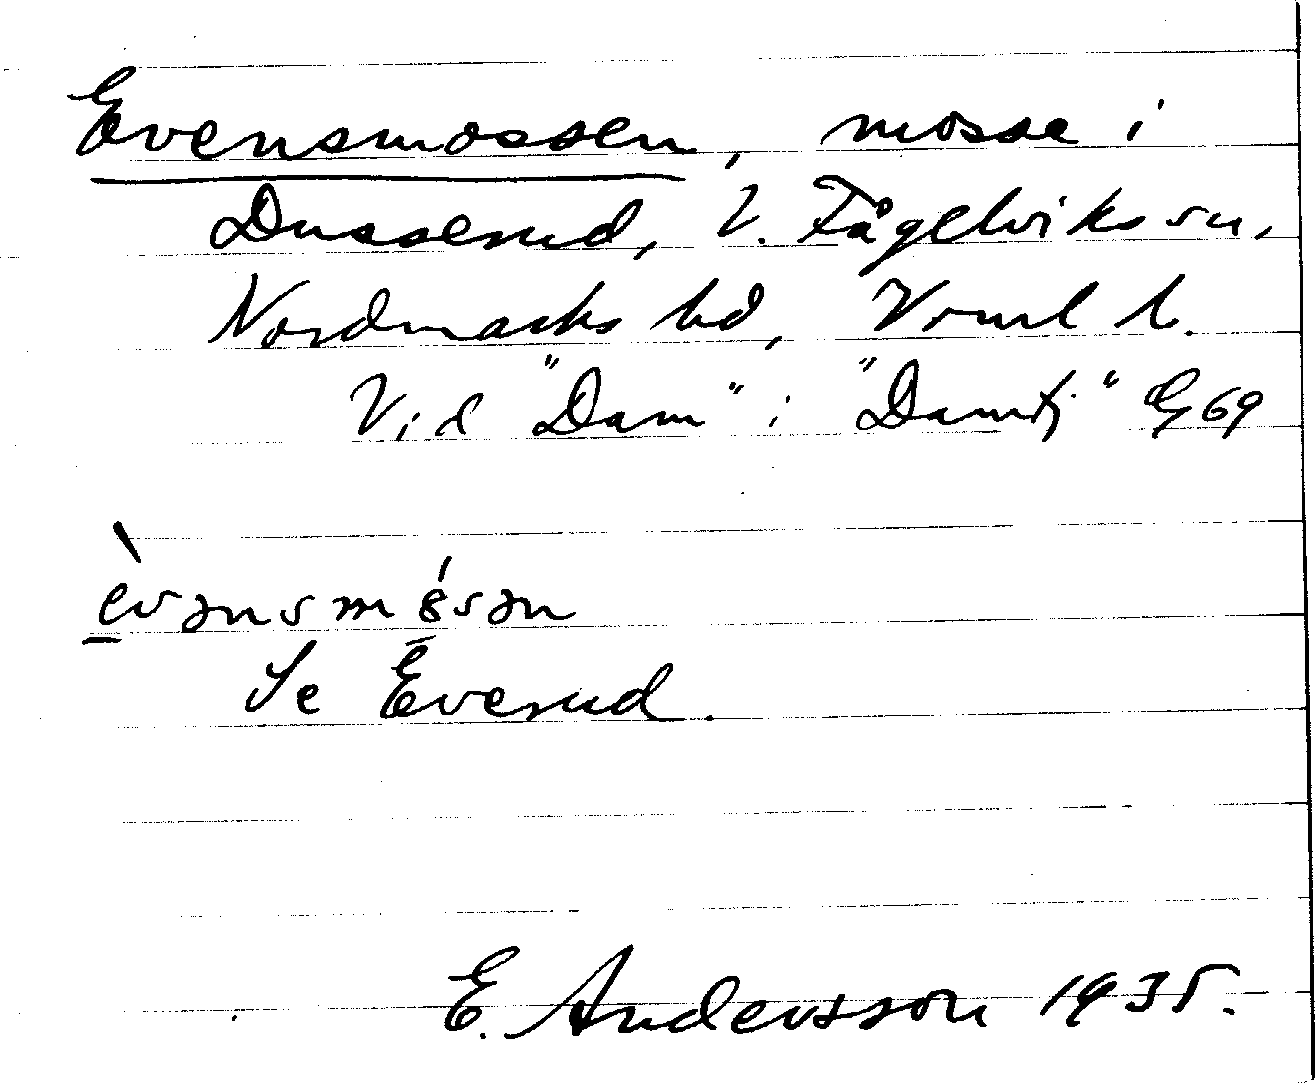 Evensmossen, mosse i
Dusserud, V. Fågelviks sn,
Nordmarks hd, Vrml l.
Vid "Dam" i "Damtj" G69
èvənsmósən
Se Everud.
E. Andersson 1935.